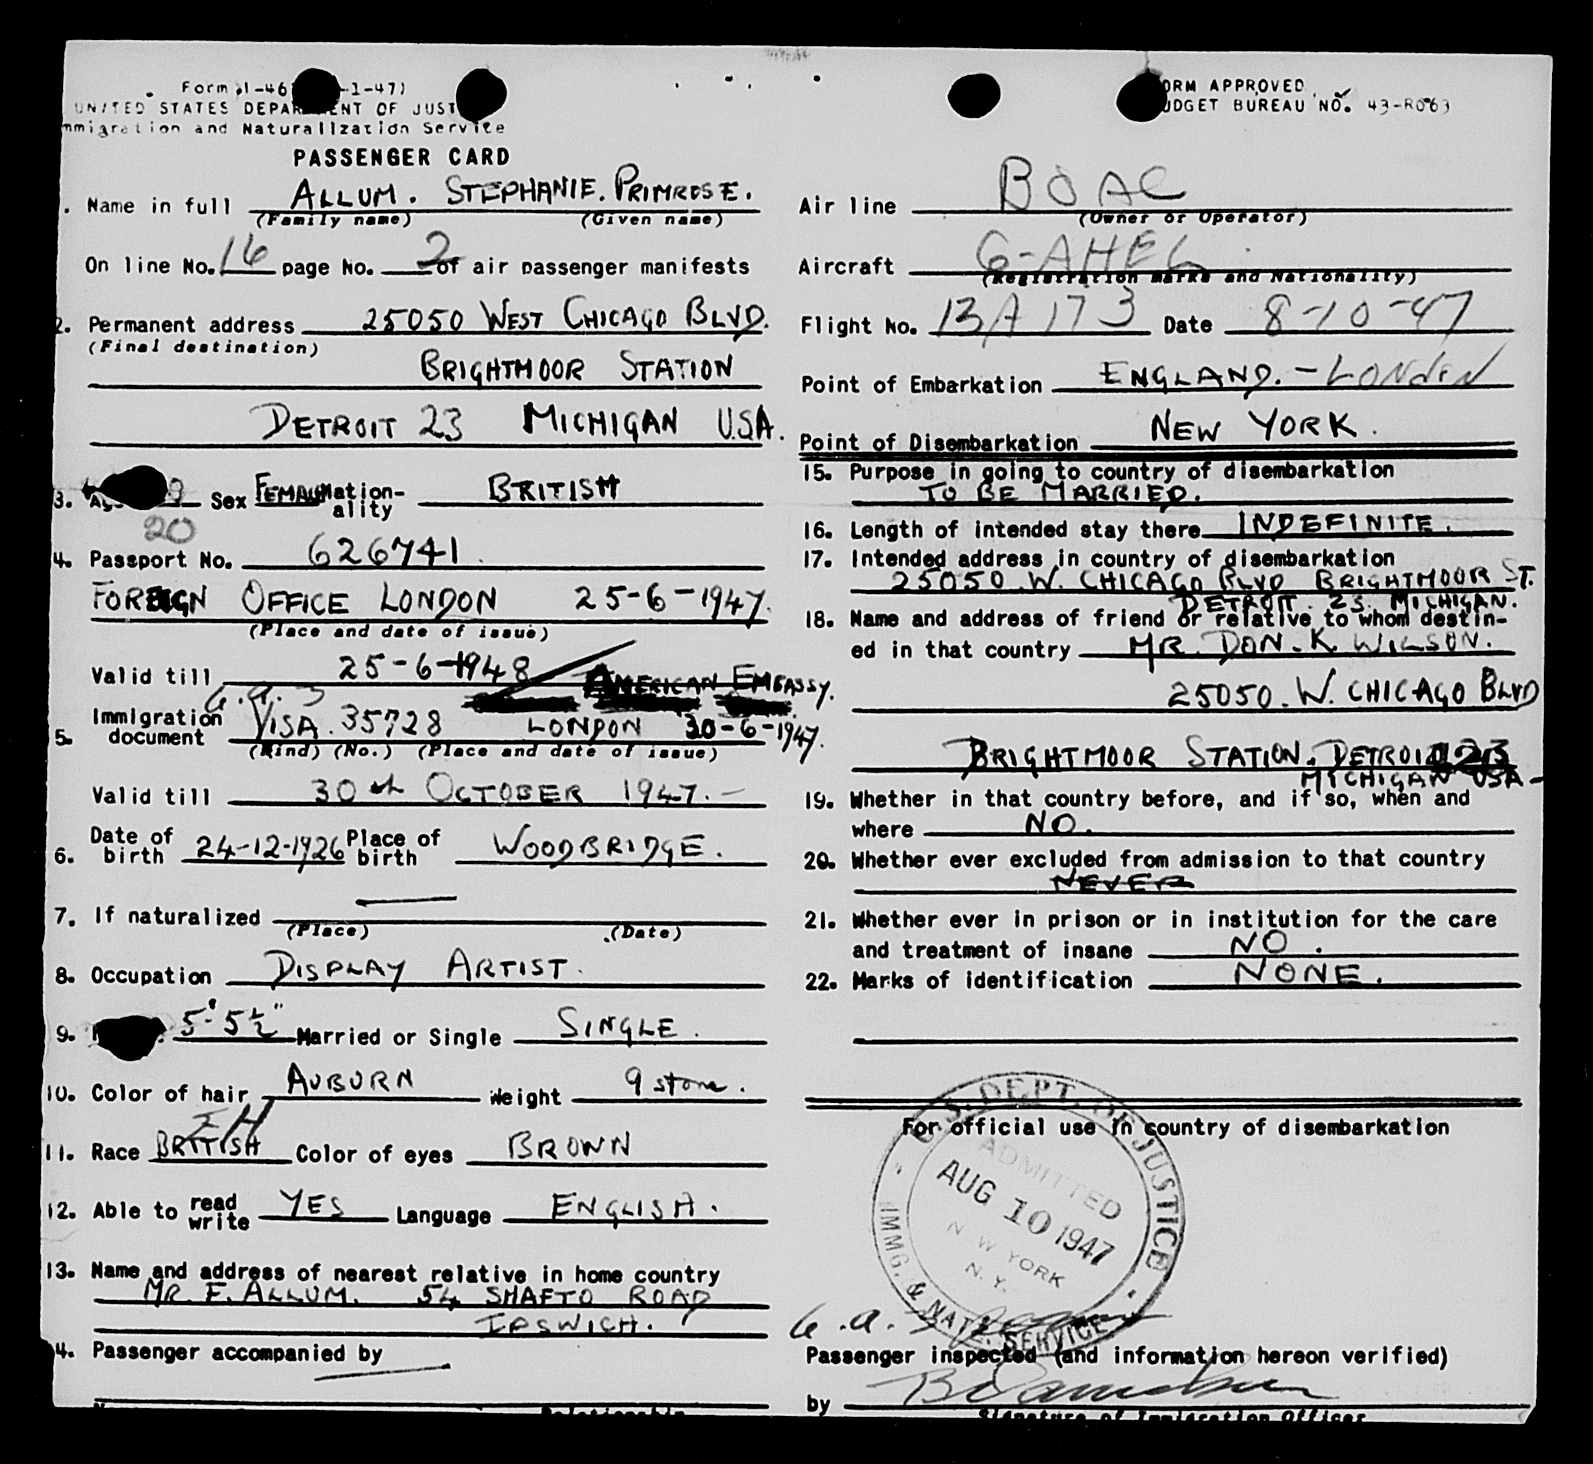 Form I-46 -1-47)
UNITED STATES DEPARTMENT OF JUST
Immigration and Naturalization Service
PASSENGER CARD
. Name in full ALLUM. STEPHANIE. PRIMROSE.
(Family name) (Given name)
On line No. 16 page No. 2 of air passenger manifests
2. Permanent address 25050 WEST CHICAGO BLVD.
(Final destination)
BRIGHTMOOR STATION
DETROIT 23 MICHIGAN U.S.A.
3. Sex FEMALE Nationality BRITISH
20
4. Passport No. 626741.
FOREIGN OFFICE LONDON 25-6-1947.
(Place and date of issue)
Valid till 25-6-1948
AMERICAN EMBASSY.
5. Immigration document VISA. 35728 LONDON 30-6-1947.
(Kind) (No.) (Place and date of issue)
Valid till 30th OCTOBER 1947.-
6. Date of birth 24-12-1926 Place of birth WOODBRIDGE.
7. If naturalized
(Place) (Date)
8. Occupation DISPLAY ARTIST.
9. 5' 5½" Married or Single SINGLE.
10. Color of hair AUBURN Weight 9 stone.
11. Race BRITISH Color of eyes BROWN
12. Able to read write YES Language ENGLISH.
13. Name and address of nearest relative in home country
MR. F. ALLUM. 54 SHAFTO ROAD
IPSWICH.
14. Passenger accompanied by
Relationship
FORM APPROVED
BUDGET BUREAU NO. 43-R063
Air line BOAC
(Owner or Operator)
Aircraft G-AHEL
(Registration marks and Nationality)
Flight No. BA173 Date 8-10-47
Point of Embarkation ENGLAND. - LONDON
Point of Disembarkation NEW YORK.
15. Purpose in going to country of disembarkation
TO BE MARRIED.
16. Length of intended stay there INDEFINITE.
17. Intended address in country of disembarkation
25050. W. CHICAGO BLVD BRIGHTMOOR ST.
DETROIT. 23. MICHIGAN.
18. Name and address of friend or relative to whom destin-
ed in that country MR. DON. K WILSON.
25050. W. CHICAGO BLVD
BRIGHTMOOR STATION. DETROIT 23
MICHIGAN USA-
19. Whether in that country before, and if so, when and
where NO.
20. Whether ever excluded from admission to that country
NEVER
21. Whether ever in prison or in institution for the care
and treatment of insane NO.
22. Marks of identification NONE.
For official use in country of disembarkation
U.S. DEPT. OF JUSTICE
ADMITTED
AUG 10 1947
NEW YORK
N.Y.
IMMG. & NATZ. SERVICE
Passenger inspected (and information hereon verified)
by
Signature of Immigration Officer